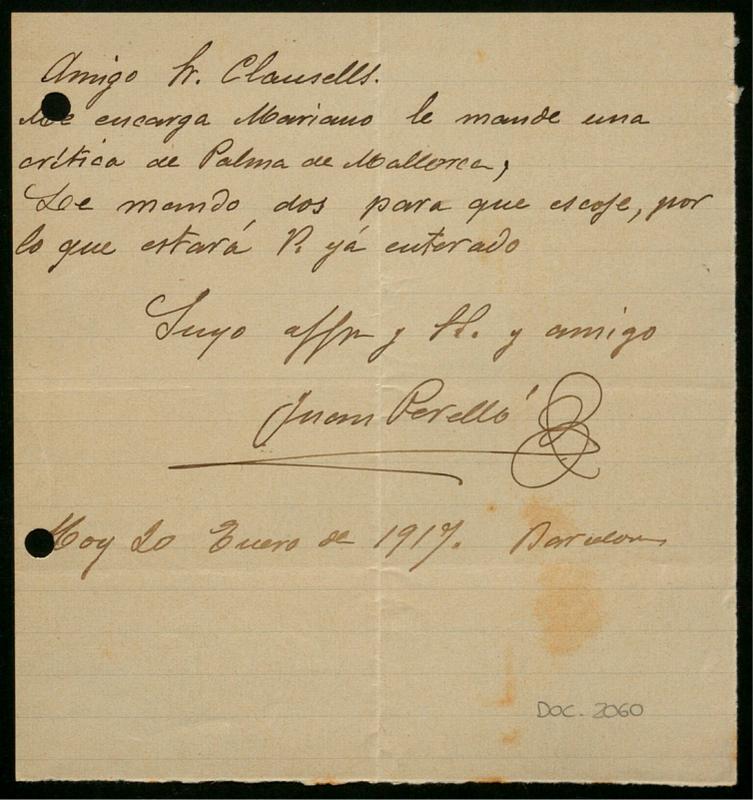 Amigo Sr. Clausells.
Me encarga Mariano le mande una
crítica de Palma de Mallorca,
Le mando dos para que escoje, por
lo que estará V. yá enterado
Suyo affm y SS. y amigo
Juan Perelló
Hoy 20 Enero de 1917. Barcelona
DOC. 2060